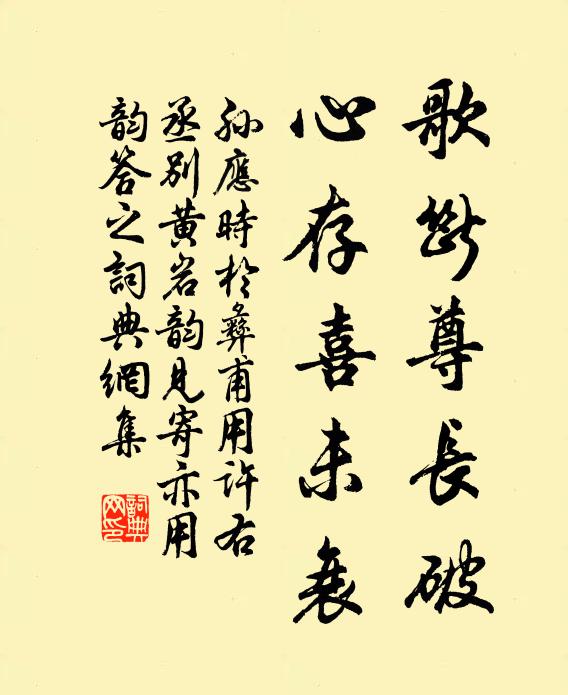 歌断尊長破
心存喜未衰
孙應時於彝甫用許右
丞別黄岩韵見寄亦用
韵答之詞典網集
詞典
网印